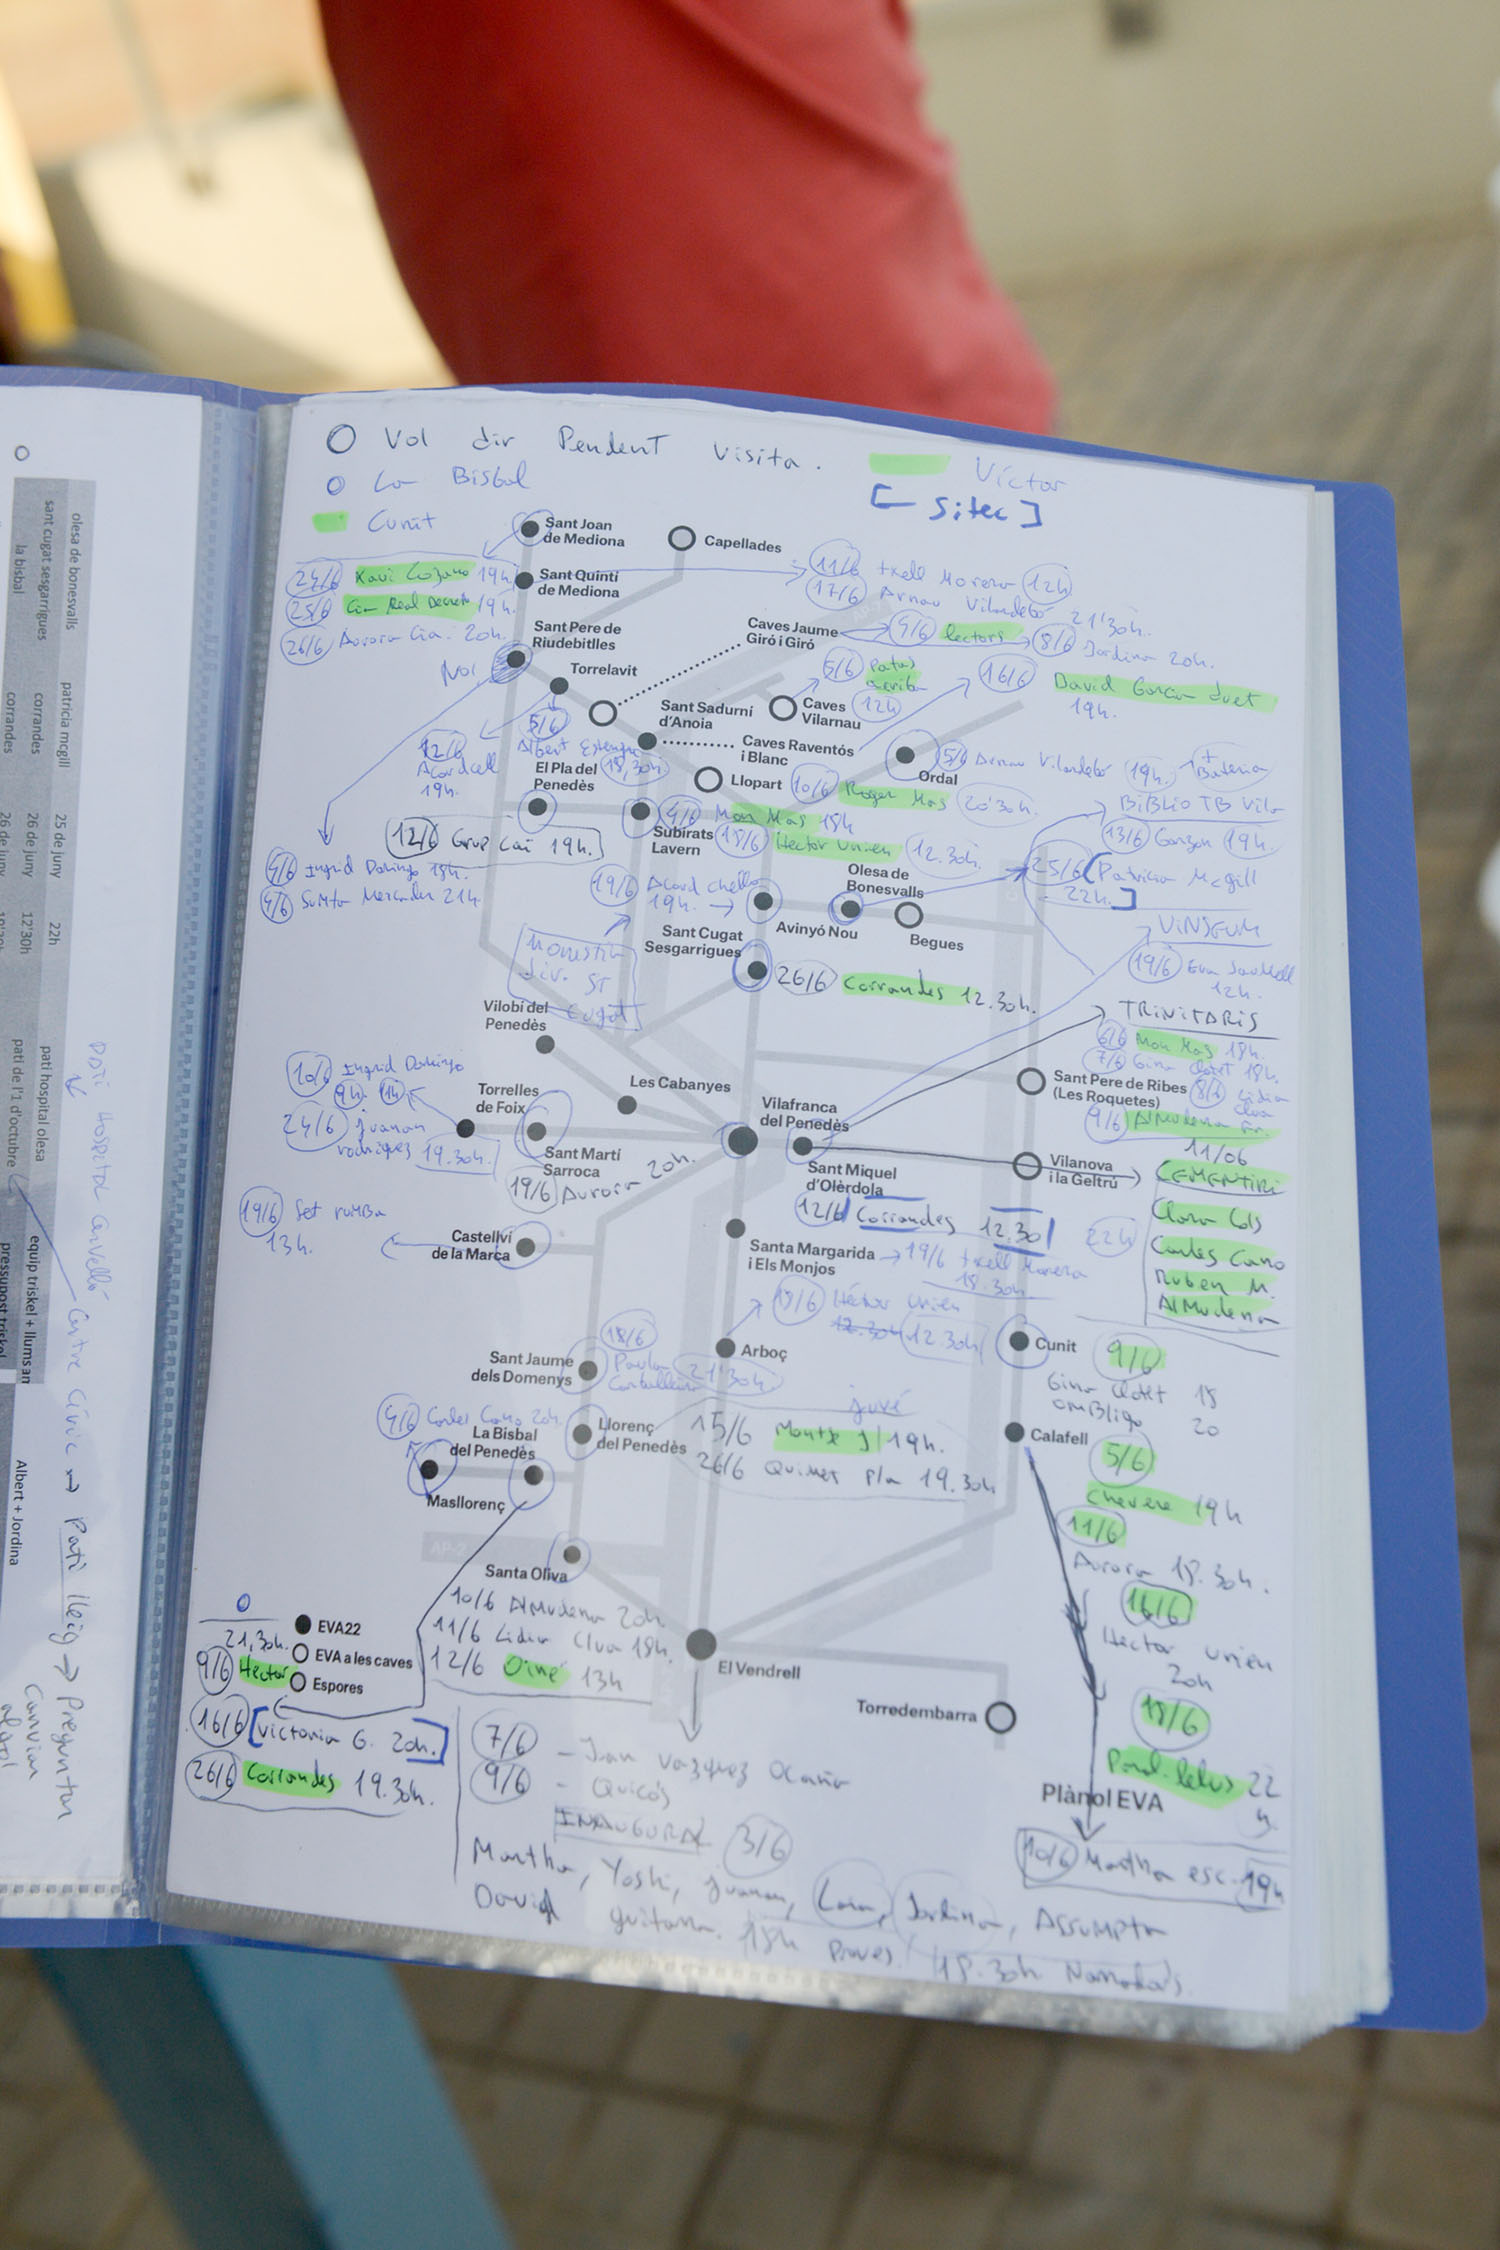 O Vol dir Pendent visita.
Víctor
O La Bisbal
[Sitec]
Cunit
Sant Joan
de Mediona
Capellades
Sant Quintí
de Mediona
24/6 Xavi Lozano 19h.
25/6 Cia Real Decreto 19h.
26/6 Aurora Cia. 20h.
11/6 Txell Morera 12h
17/6 Arnau Vilardebó 21'30h.
Sant Pere de
Riudebitlles
No!
Torrelavit
Caves Jaume
Giró i Giró
9/6 lectors
8/6 Jordina 20h.
5/6
12h
16/6 David García Juet
19h.
Sant Sadurní
d'Anoia
Caves
Vilarnau
Caves Raventós
i Blanc
5/6
18,30h
12/6
Acordcell
19h.
El Pla del
Penedès
Llopart
10/6 Roger Mas 20'30h.
Ordal
5/6 Arnau Vilardebó 19h.
+
Bateria
12/6 Grup Caï 19h.
Subirats
Lavern
4/6 Mon Mas 18h
18/6 Hèctor Urien 12.30h.
4/6 Ingrid Domingo 18h.
4/6 Sumta Mercader 21h.
BIBLIO TB Vila
13/6 Garzon 19h.
25/6 [Patricia Mcgill
22h.]
Olesa de
Bonesvalls
19/6 Acord chello
19h.
Avinyó Nou
Begues
Sant Cugat
Sesgarrigues
26/6 Corrandes 12.30h.
div. ST
Cugat
VINSEUM
19/6
12h.
Vilobí del
Penedès
TRINITARIS
6/6 Mon Mas 18h.
7/6 Gina Clotet 18h.
8/6 Lidia
Clua
9/6 Almudena
10/6 Ingrid Domingo
9h. 11h
24/6 Juanan
rodriguez 19.30h.
Torrelles
de Foix
Les Cabanyes
Vilafranca
del Penedès
Sant Pere de Ribes
(Les Roquetes)
Sant Martí
Sarroca
19/6 Aurora 20h.
Sant Miquel
d'Olèrdola
12/6 Corrandes 12.30
Vilanova
i la Geltrú
11/06
CEMENTIRI
22h
Clara Cols
Carles Cano
Ruben M.
Almudena
19/6 Set rumba
13h.
Castellví
de la Marca
Santa Margarida
i Els Monjos
19/6 Txell Morera
18.30h.
18/6 Hèctor Urien
12.30h 12.30h
Arboç
Cunit
9/6
Gina Clotet 18
omBligo 20
Sant Jaume
dels Domenys
18/6
Paula
Carballeira
21'30h
Calafell
5/6
Chevere 19h
11/6
Aurora 18.30h.
16/6
Hèctor Urien
20h
18/6
22
h
4/6 Carles Cano 20h.
La Bisbal
del Penedès
Llorenç
del Penedès
juvé
15/6 Montse J 19h.
26/6 Quimet Pla 19.30h
Masllorenç
AP-2
Santa Oliva
10/6 Almudena 20h
11/6 Lidia Clua 18h.
12/6 Oiné 13h
EVA22
EVA a les caves
Espores
21,30h.
9/6 Hèctor
16/6 [Victoria G. 20h.]
26/6 Corrandes 19.30h.
El Vendrell
Torredembarra
7/6 - Joan Vazquez Ocaña
9/6 - Quicos
INAUGURAL 3/6
Martha, Yoshi, juanan, Lara, Jordina, Assumpta
David guitarra. 18h Proves! 18.30h Narradors
Plànol EVA
10/6 Martha esc. 19h
olesa de bonesvalls
patricia mcgill
25 de juny
22h
pati hospital olesa
sant cugat sesgarrigues
corrandes
26 de juny
12'30h
pati de l'1 d'octubre
equip triskel + llums an
la bisbal
corrandes
26 de juny
19'30h
pressupost triskel
Albert + Jordina
Pati Hospital Cervelló
Centre Cívic → Pati lleig → Preguntar